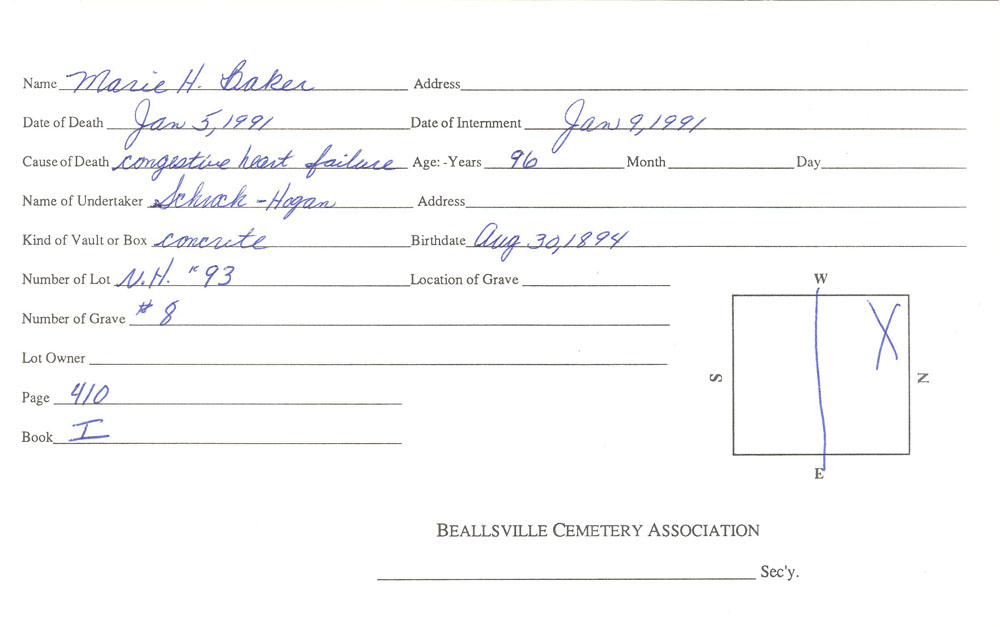 Name Marie H. Baker Address
Date of Death Jan 5, 1991 Date of Internment Jan 9, 1991
Cause of Death congestive heart failure Age: -Years 96 Month Day
Name of Undertaker Schuck - Hogan Address
Kind of Vault or Box concrete Birthdate Aug 30, 1894
Number of Lot N.H. # 93 Location of Grave
W
Number of Grave # 8
X
Lot Owner
S N
Page 410
Book I
E
BEALLSVILLE CEMETERY ASSOCIATION
Sec'y.